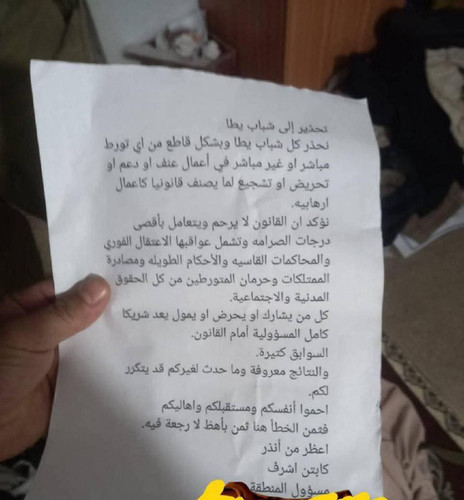 تحذير إلى شباب يطا
نحذر كل شباب يطا وبشكل قاطع من اي تورط
مباشر او غير مباشر في أعمال عنف او دعم او
تحريض او تشجيع لما يصنف قانونيا كاعمال
ارهابيه.
نؤكد ان القانون لا يرحم ويتعامل بأقصى
درجات الصرامه وتشمل عواقبها الاعتقال الفوري
والمحاكمات القاسيه والأحكام الطويله ومصادرة
الممتلكات وحرمان المتورطين من كل الحقوق
المدنية والاجتماعية.
كل من يشارك او يحرض او يمول يعد شريكا
كامل المسؤولية أمام القانون.
السوابق كتيرة.
والنتائج معروفة وما حدث لغيركم قد يتكرر
لكم.
احموا أنفسكم ومستقبلكم واهاليكم
فثمن الخطأ هنا ثمن بأهظ لا رجعة فيه.
اعظر من أنذر
كابتن اشرف
مسؤول المنطقة